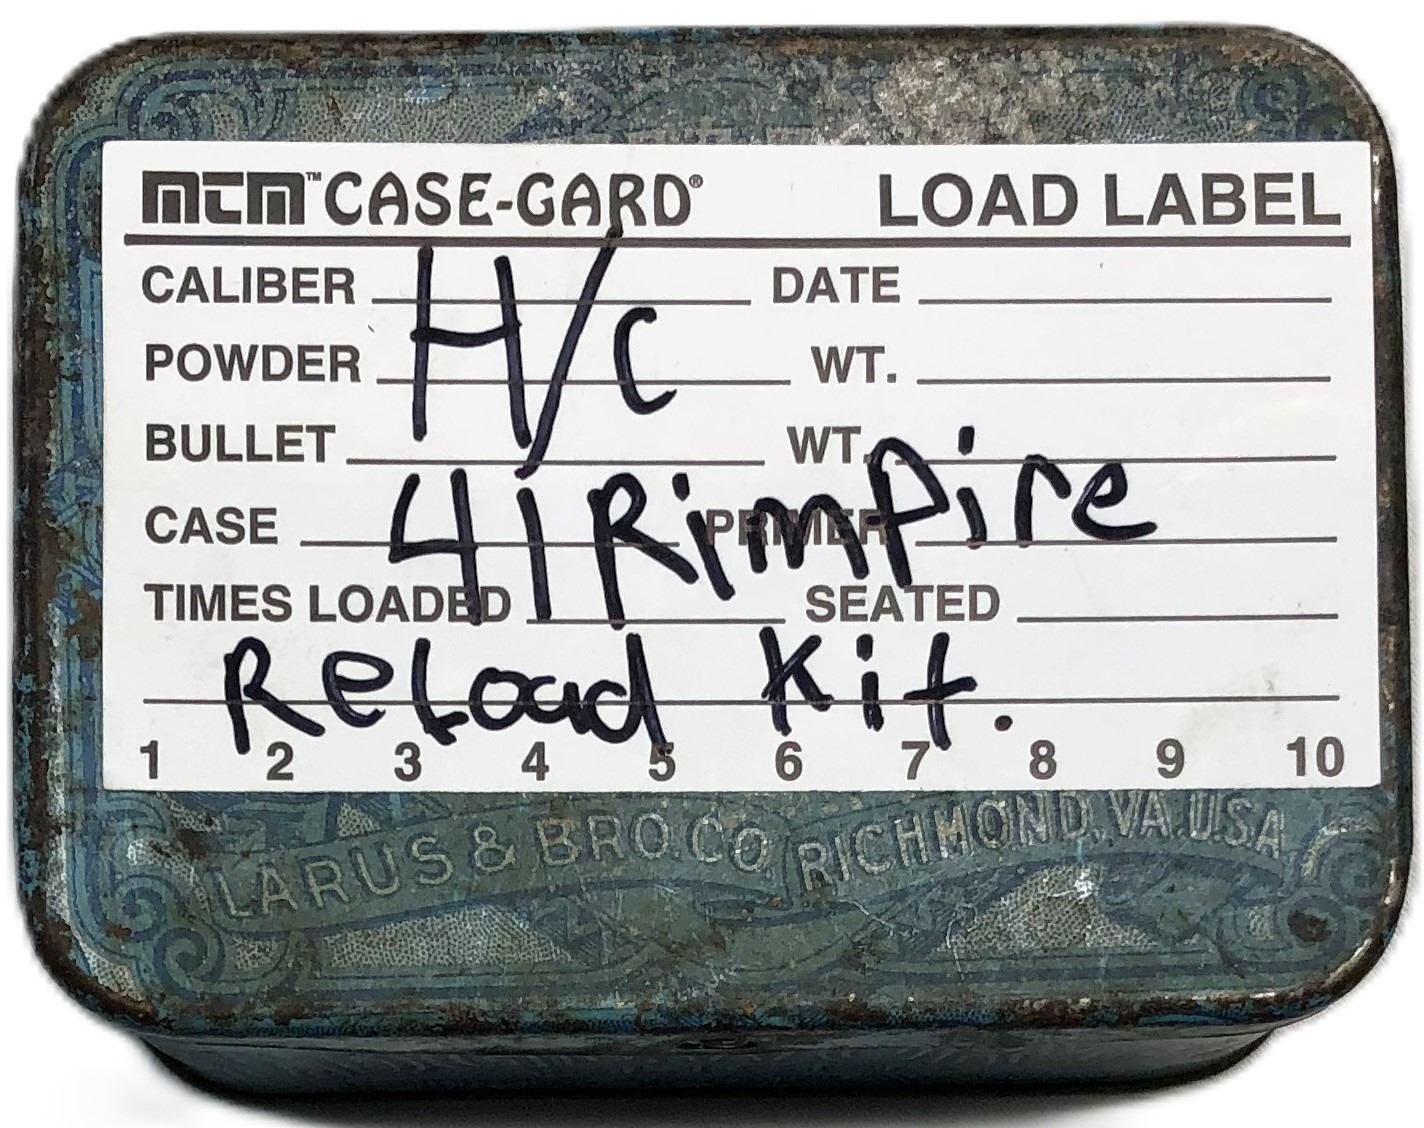 MTM™ CASE-GARD® LOAD LABEL
CALIBER DATE
H/C
POWDER WT.
BULLET WT.
41 Rimfire
CASE PRIMER
TIMES LOADED SEATED
ReLoad Kit.
1 2 3 4 5 6 7 8 9 10
LARUS & BRO.CO. RICHMOND,VA.U.S.A